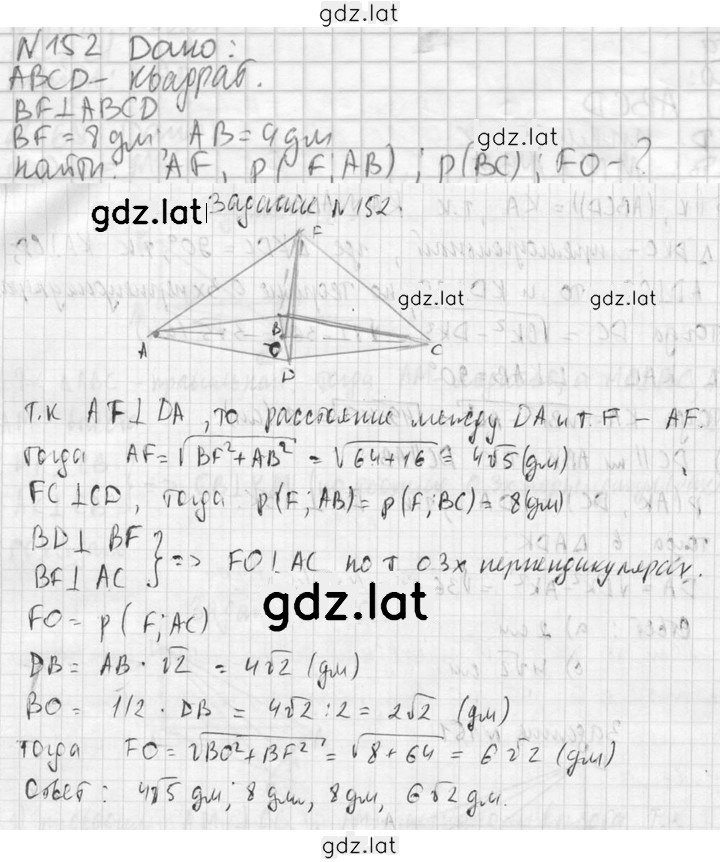 gdz.lat
N152 Дано:
ABCD - квадрат.
BF⊥ABCD
BF = 8 дм, AB = 4 дм
Найти: AF, ρ(F; AB); ρ(BC); FO - ?
gdz.lat
gdz.lat
Задание N152.
F
gdz.lat
gdz.lat
B
A
O
C
D
т.к AF⊥DA, то расстояние между DA и т F - AF.
тогда AF = √BF²+AB² = √64+16 = 4√5 (дм)
FC⊥CD, тогда ρ(F, AB) = ρ(F; BC) = 8 (дм)
BD⊥BF
BF⊥AC } => FO⊥AC по т о 3х перпендикулярах.
gdz.lat
FO = ρ(F; AC)
DB = AB · √2 = 4√2 (дм)
BO = 1/2 · DB = 4√2 : 2 = 2√2 (дм)
тогда FO = √BO²+BF² = √8+64 = 6√2 (дм)
Ответ: 4√5 дм; 8 дм, 8 дм, 6√2 дм.
gdz.lat